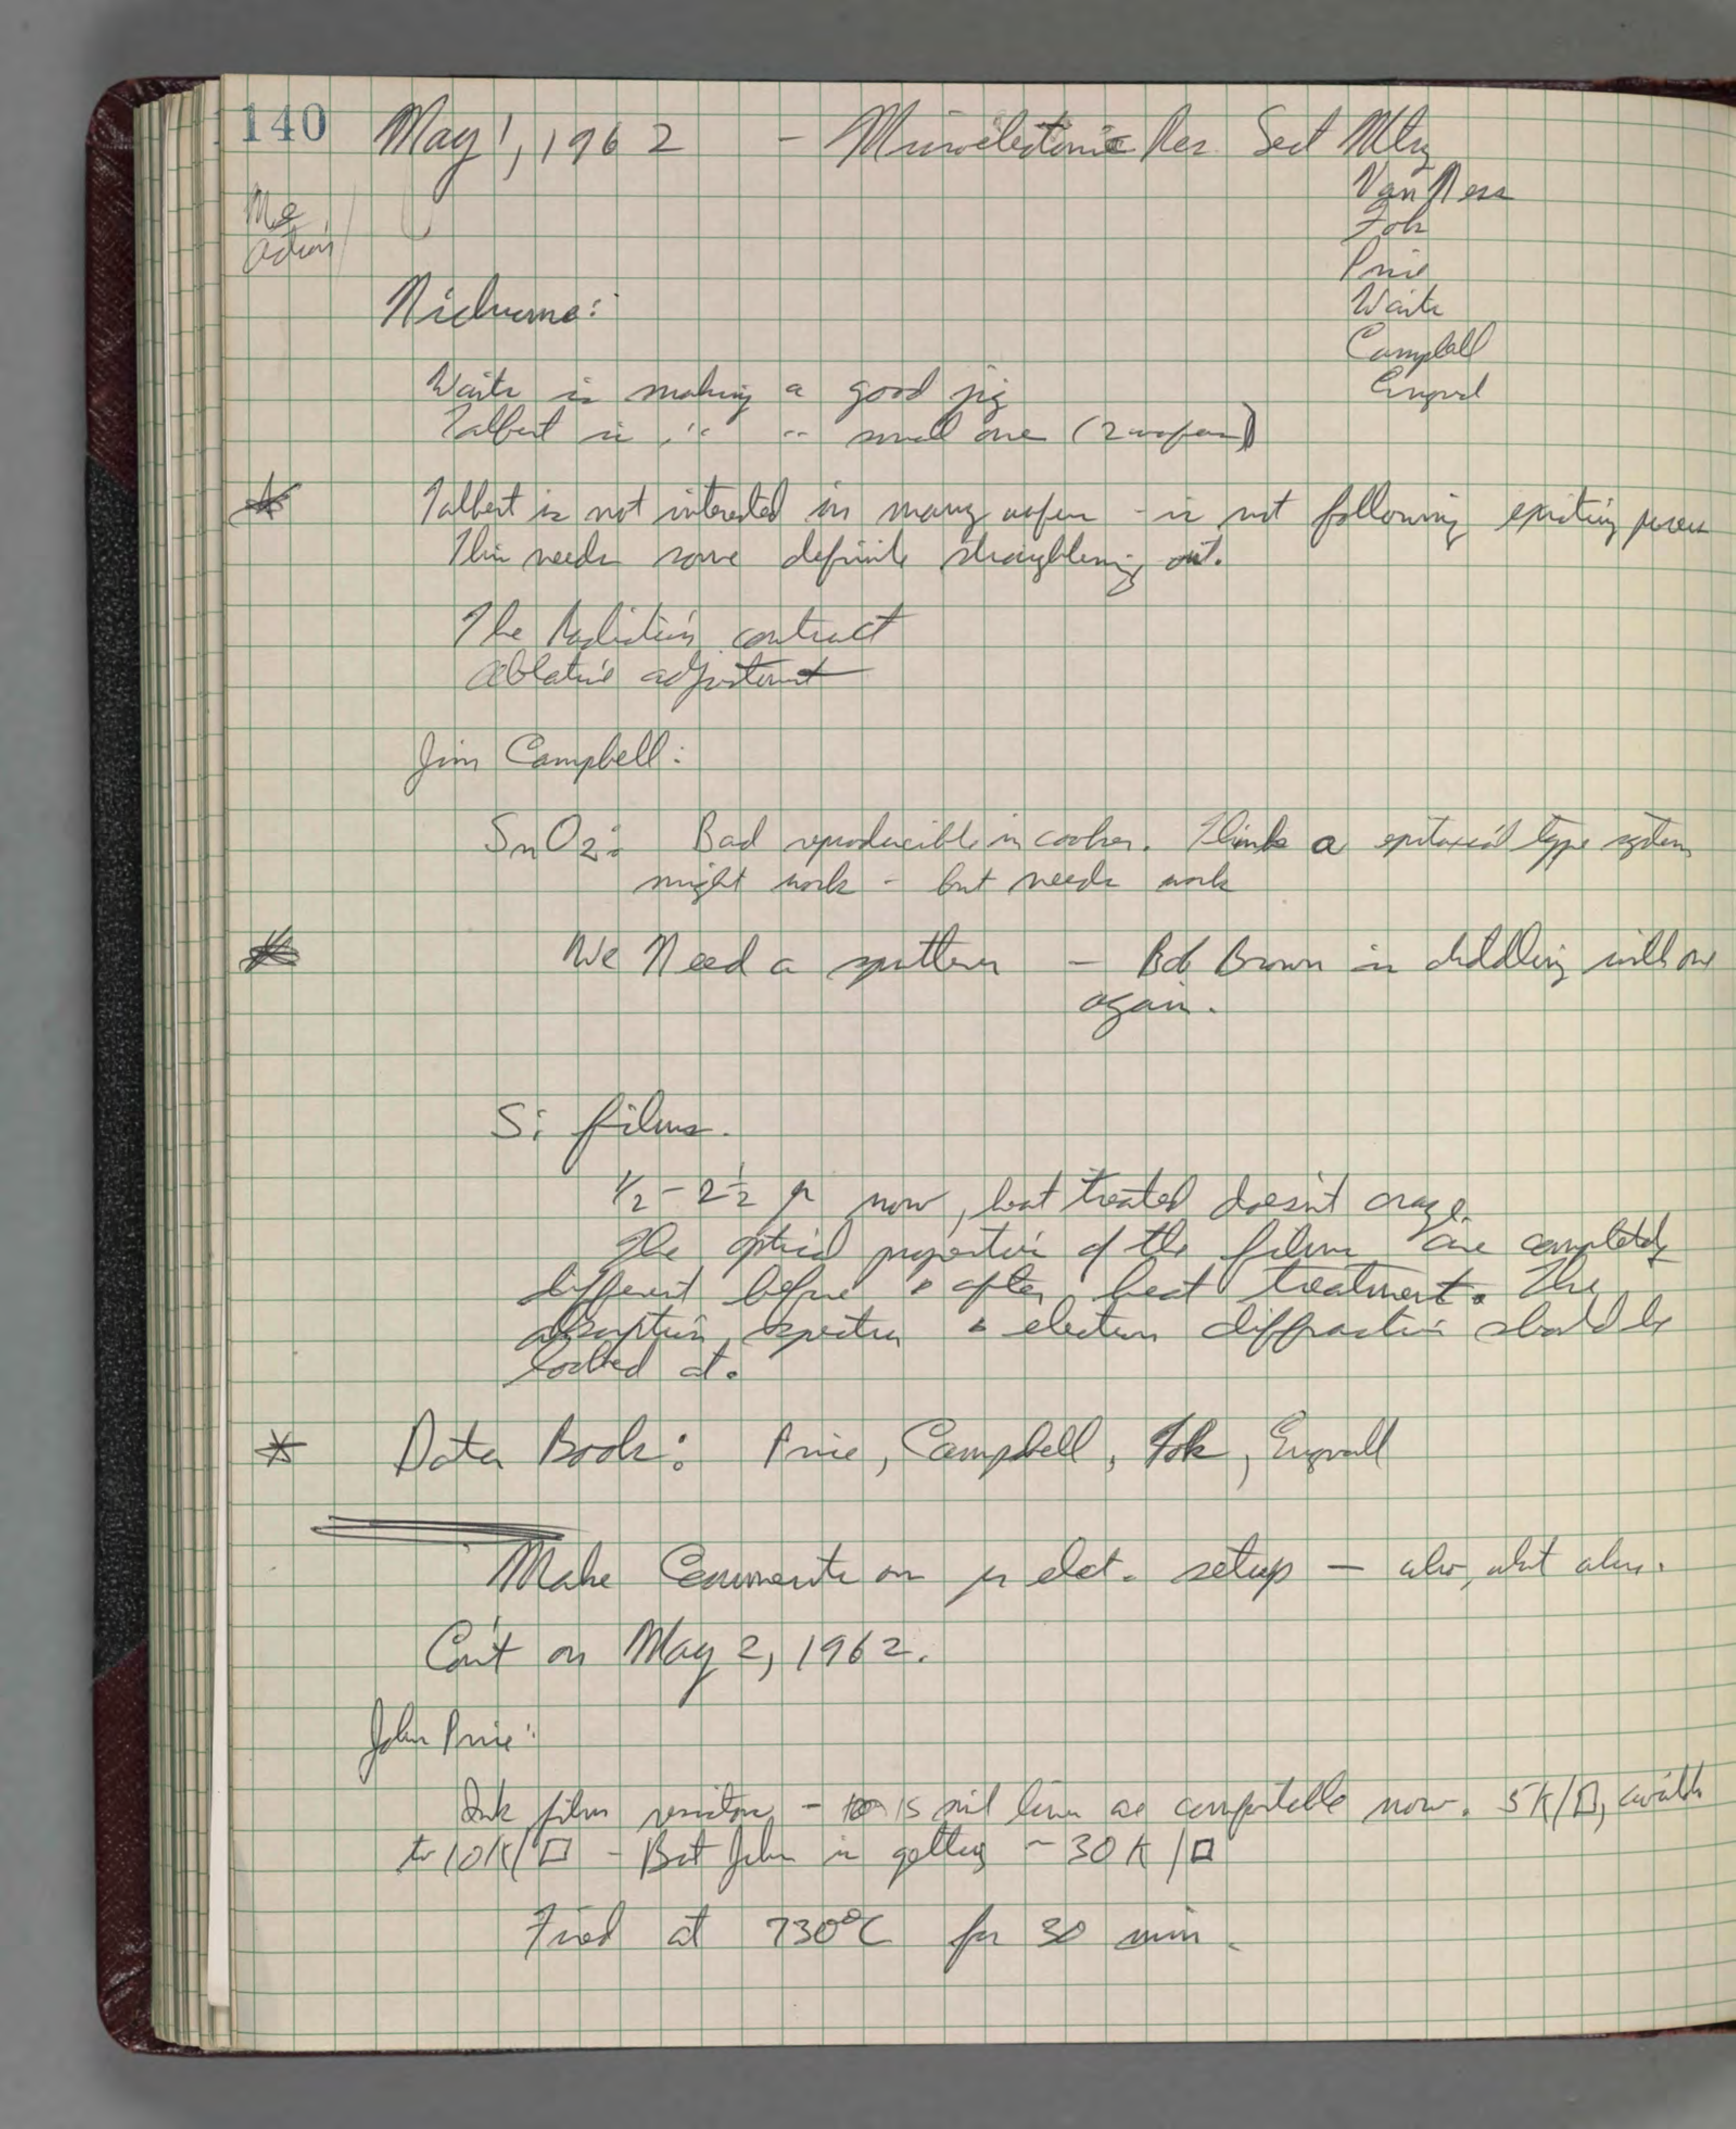 140 May 1, 1962 - Microelectronic Res. Sect Mtg
Van Ness
Fok
Price
Waite
Campbell
Engvall
Me
action
Nichrome:
Waite is making a good jig
Talbert is " " small one (2 wafers)
Talbert is not interested in many wafers - is not following existing process
This needs some definite straightening out.
The Radiation contract
ablative adjustment
Jim Campbell:
SnO2: Bad reproducible in cooker. Thinks a epitaxial type system
might work - but needs work
We Need a sputterer - Bob Brown is diddling with one
again.
Si films.
1/2 - 2 1/2 μ now, heat treated doesn't craze.
The optical properties of the films are completely
different before & after heat treatment. The
absorption spectra & electron diffraction should be
looked at.
Data Book: Price, Campbell, Fok, Engvall
Make Comments on μ elect. setup - also, what
Con't on May 2, 1962.
John Price:
Ink film resistors - 15 mil lines are comfortable now. 5K/□,
to 10K/□ - But John is getting ~30K/□
Fired at 730°C for 30 min.